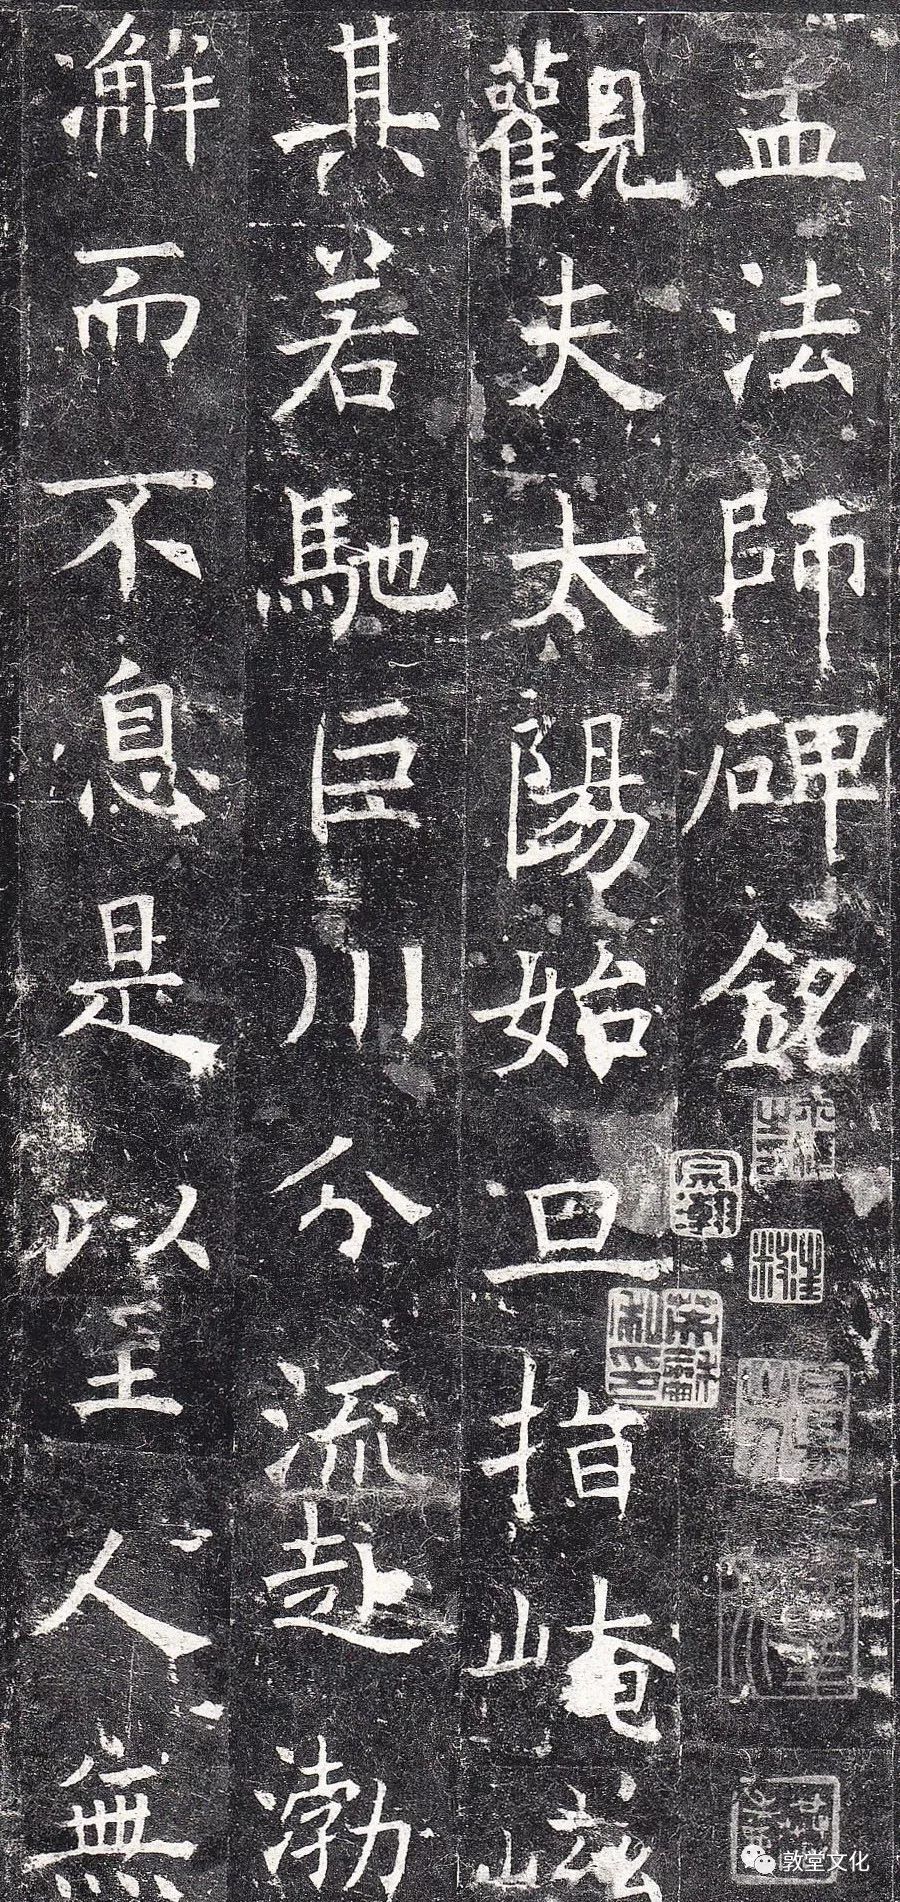 孟法師碑銘
觀夫太陽始旦指崦嵫
其若馳巨川分流赴渤
澥而不息是以至人無
敦堂文化